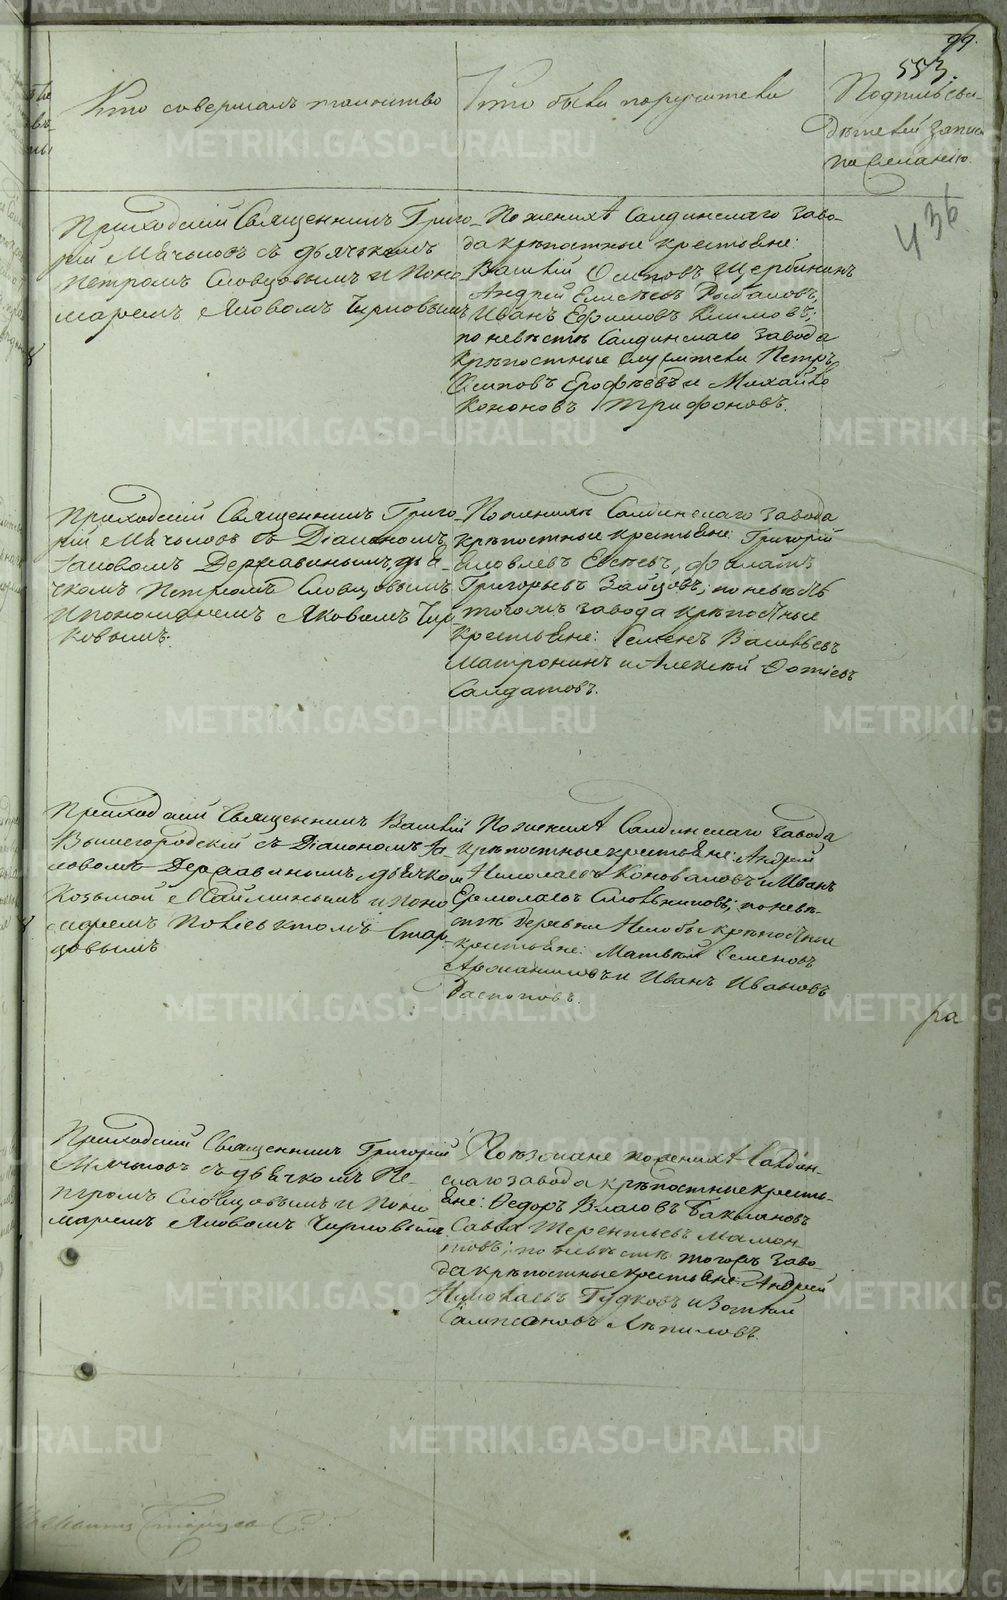 99.
553.
Кто совершалъ таинство
Кто были поручители
Подпись сви-
дѣтелей записи
по желанію.
436
Приходскій Священникъ Григо-
рій Мячковъ съ дьячкомъ
Петромъ Словцовымъ и Поно
маремъ Яковомъ Чирковымъ
По женихѣ Салдинскаго заво-
да крѣпостные крестьяне:
Василій Осиповъ Щербининъ
Андрей Елисѣевъ Рыбаковъ,
Иванъ Ефимовъ Климовъ;
по невѣстѣ Салдинскаго завода
крѣпостные служители Петръ
Осиповъ Ерофѣевъ и Михайло
Кононовъ Трифоновъ.
Приходскій Священникъ Григо
рій Мячковъ съ Діакономъ
Іаковомъ Державинымъ, дья-
чкомъ Петромъ Словцовымъ
и пономаремъ Яковомъ Чир
ковымъ.
По женихѣ Салдинскаго завода
крѣпостные крестьяне Григорій
Яковлевъ Евсѣевъ, Филатъ
Григорьевъ Зайцовъ; по невѣстѣ
тогожъ завода крѣпостные
крестьяне: Семенъ Васильевъ
Матронинъ и Алексѣй Фотіевъ
Салдатовъ.
Приходскій Священникъ Василій
Вышегородскій съ Діакономъ Іа-
ковомъ Державинымъ, дьячком
Козьмой Майлинымъ и Поно
маремъ Стар-
цовымъ
По женихѣ Салдинскаго завода
крѣпостные крестьяне: Андрей
Николаевъ Коноваловъ и Иванъ
Ермолаевъ по невѣ-
стѣ деревни Нелобы крѣпостные
крестьяне: Матвѣй Семеновъ
и Иванъ Ивановъ
Распоповъ.
ра
Приходскій Священникъ Григорій
Мячковъ съ дьячкомъ Пе-
тромъ Словцовымъ и Поно
маремъ Яковомъ Чирковымъ
по женихѣ Салдин-
скаго завода крѣпостные кресть-
яне: Ѳедоръ Власовъ Бакшановъ
Савва Терентьевъ Мамон-
товъ; по невѣстѣ тогожъ заво-
да крѣпостные крестьяне: Андрей
Николаевъ Гудковъ и
Сампсоновъ Ляпиловъ.
METRIKI.GASO-URAL.RU